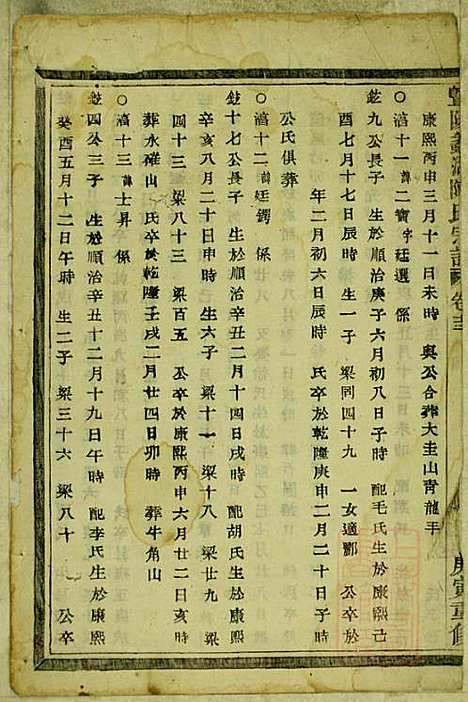 康熙丙申三月十一日未時 與公合葬大圭山青龍手
○滈十一諱二寶字廷選 係
鈜九公長子 生於順治庚子六月初八日子時 配毛氏生於康熙己
酉七月十七日辰時 生一子 梁同四十九 一女適酈 公卒於
年二月初六日辰時 氏卒於乾隆庚申二月二十日子時
公氏俱葬
○滈十二諱廷鍔 係
鈜十七公長子 生於順治辛丑二月十四日戌時 配胡氏生於康熙
辛亥八月二十日申時 生六子 梁十一 梁十八 梁廿九 梁
四十三 梁八十三 梁百五 公卒於康熙丙申六月廿二日亥時
葬永確山 氏卒於乾隆壬戌二月廿四日卯時 葬牛角山
○滈十三諱士昇 係
鈜四公三子 生於順治辛丑十二月十九日午時 配李氏生於康熙
癸酉五月十二日午時 生二子 梁三十六 梁八十 公卒
陳氏宗譜 卷
庚寅重修